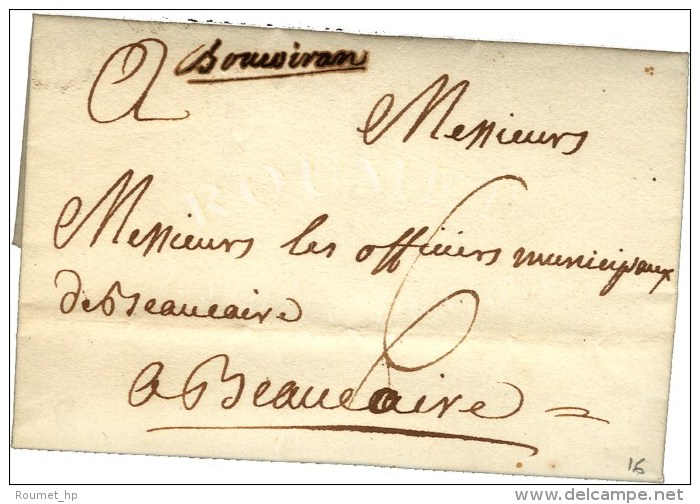 Boucoiran
A Messieurs
Messieurs les officiers municipaux
de Beaucaire
6
a Beaucaire =
16
Roumet_hp
© delcampe.net